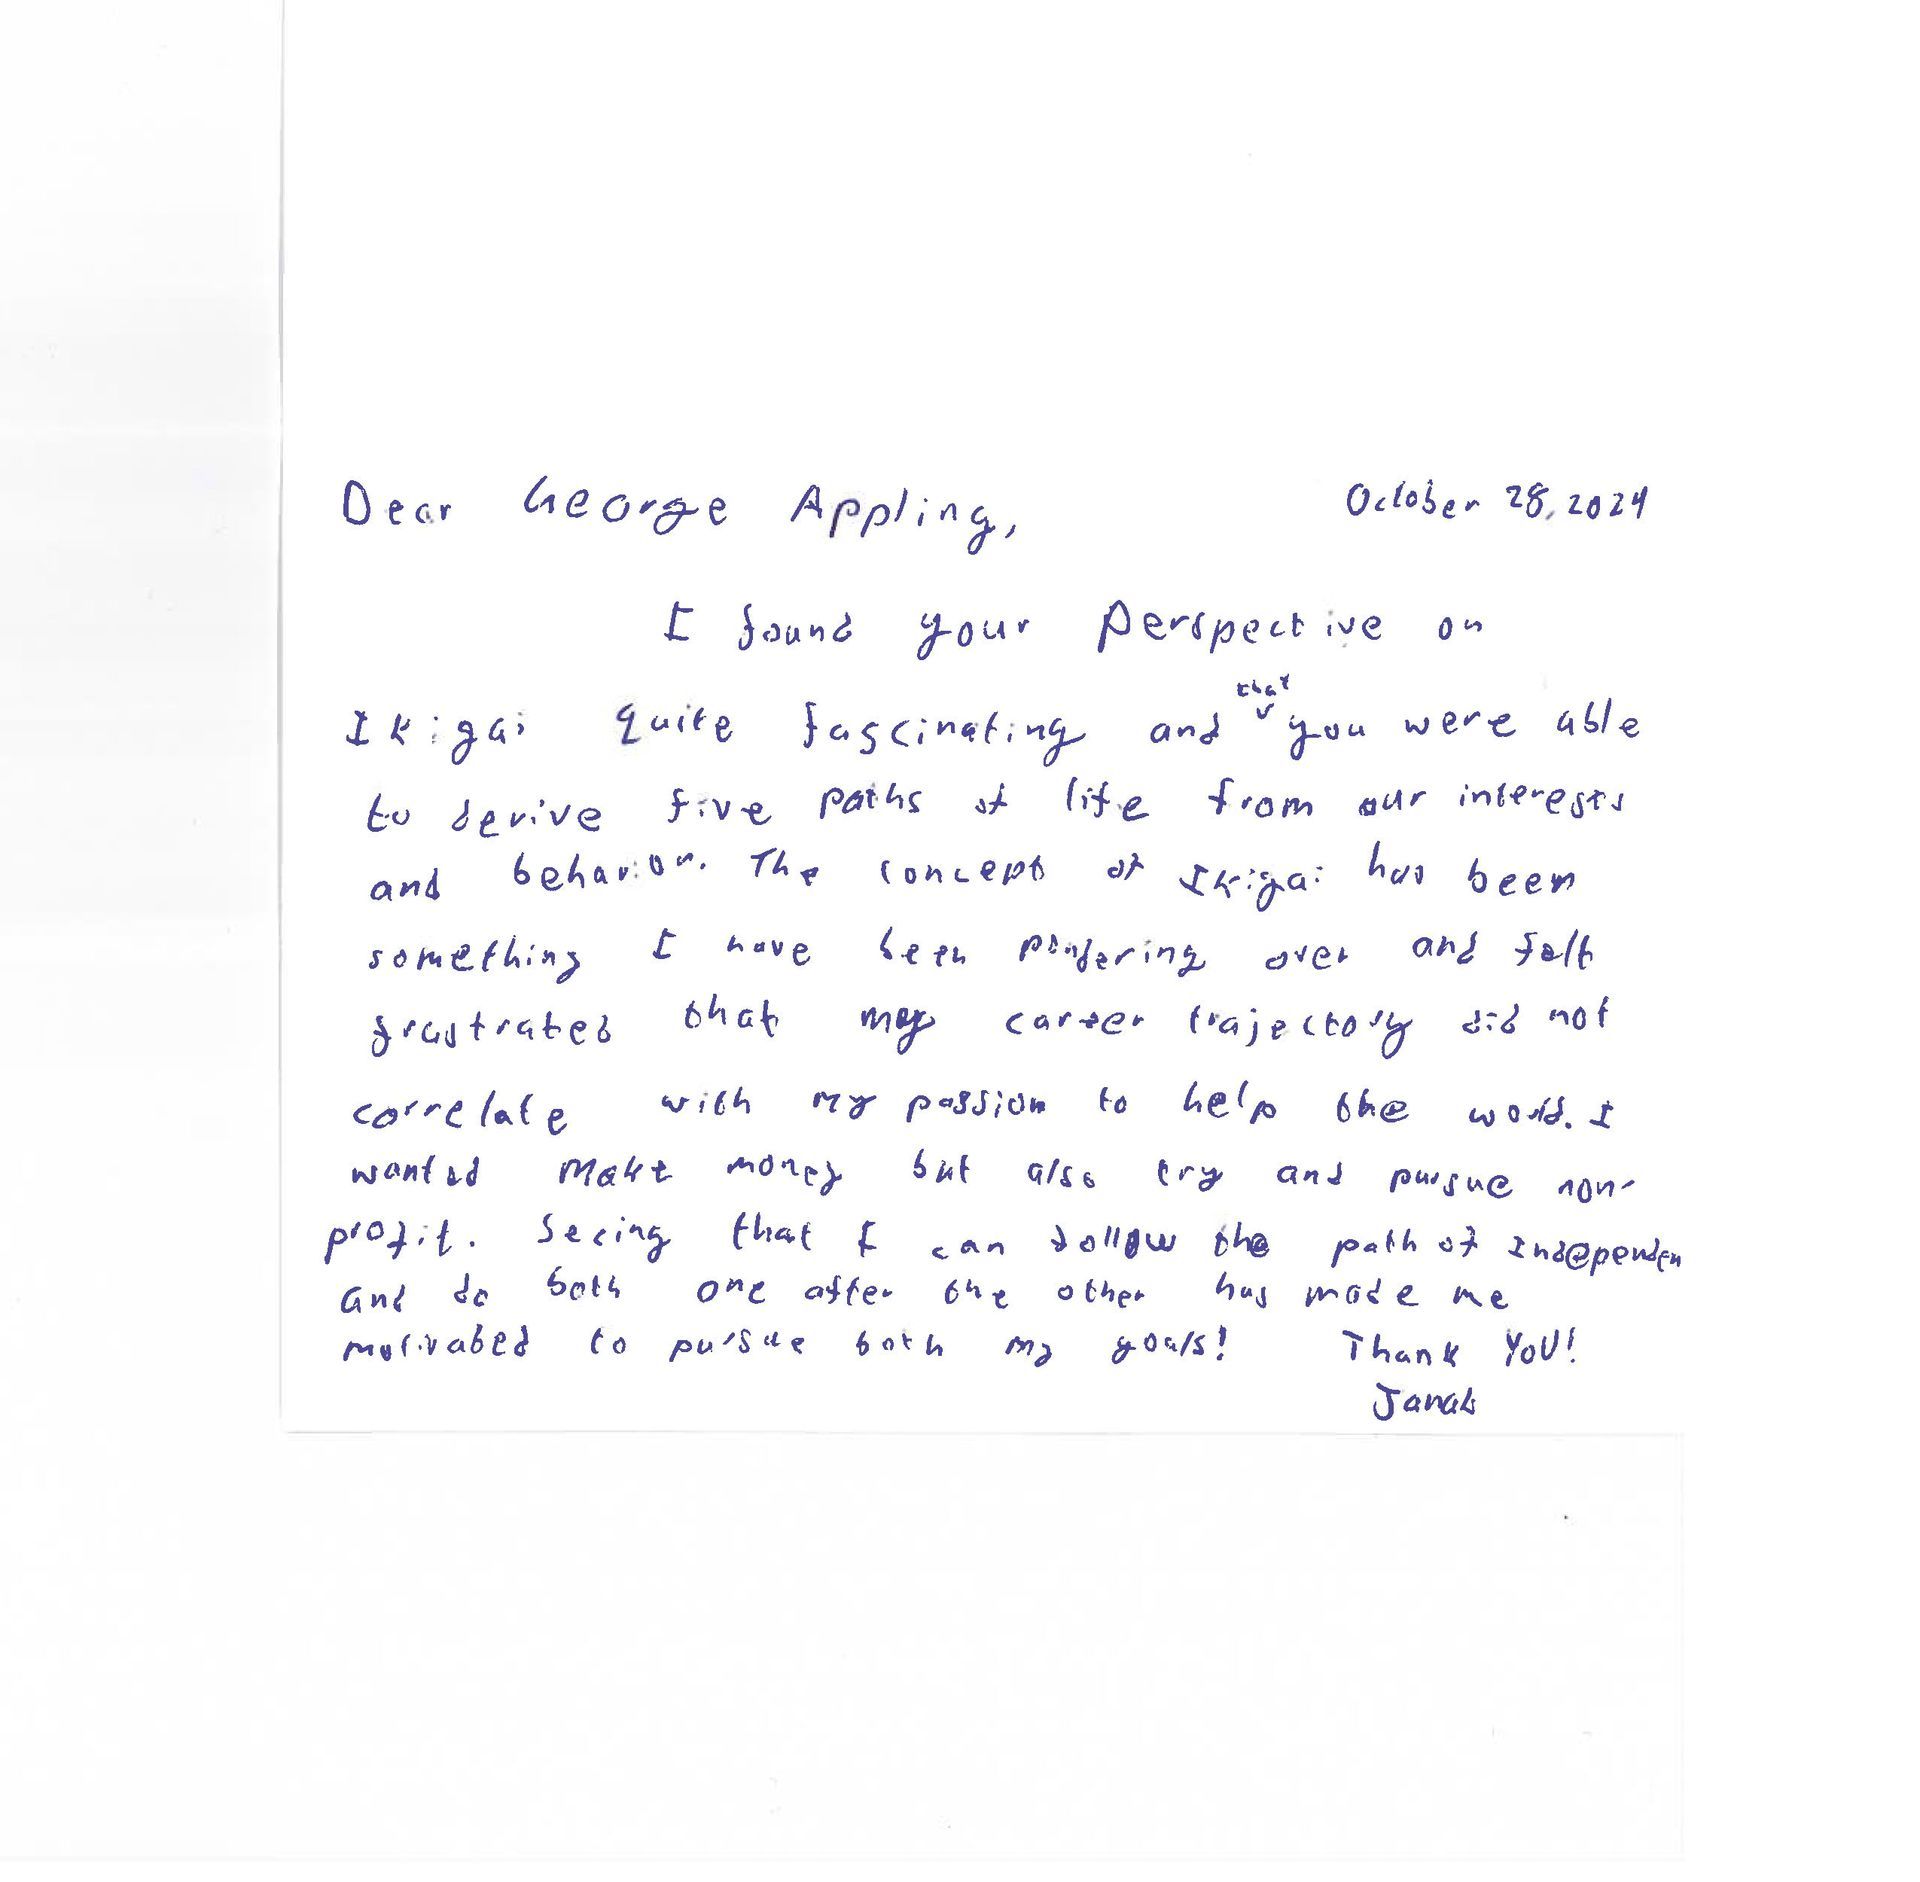 Dear George Appling, October 28, 2024
I found your perspective on
Ikigai quite fascinating and that you were able
to derive five paths of life from our interests
and behavior. The concept of Ikigai has been
something I have been pondering over and felt
frustrated that my career trajectory did not
correlate with my passion to help the world. I
wanted make money but also try and pursue non-
profit. Seeing that I can follow the path of Independen
and do both one after the other has made me
motivated to pursue both my goals! Thank YOU!